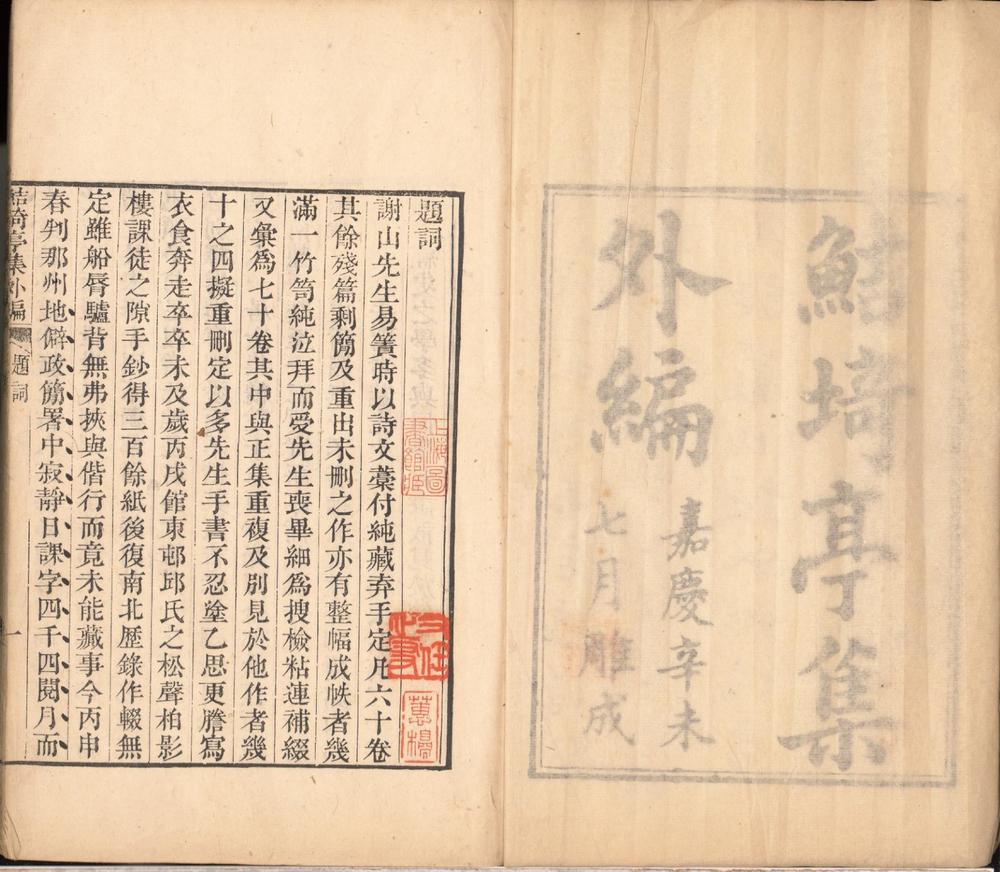 鮚埼亭集
外編
嘉慶辛未
七月雕成
題詞
謝山先生易簀時以詩文藁付純藏弆手定凡六十卷
其餘殘篇剩簡及重出未刪之作亦有整幅成帙者幾
滿一竹笥純泣拜而受先生喪畢細為搜檢粘連補綴
又彙為七十卷其中與正集重複及別見於他作者幾
十之四擬重刪定以多先生手書不忍塗乙思更謄寫
衣食奔走卒卒未及歲丙戌館東邨邱氏之松聲柏影
樓課徒之隙手鈔得三百餘紙後復南北歷錄作輟無
定雖船脣驢背無弗挾與偕行而竟未能蕆事今丙申
春判那州地僻政簡署中寂靜日課字四千四閱月而
鮚埼亭集外編 題詞 一
上海圖
書館臧
蕙櫋